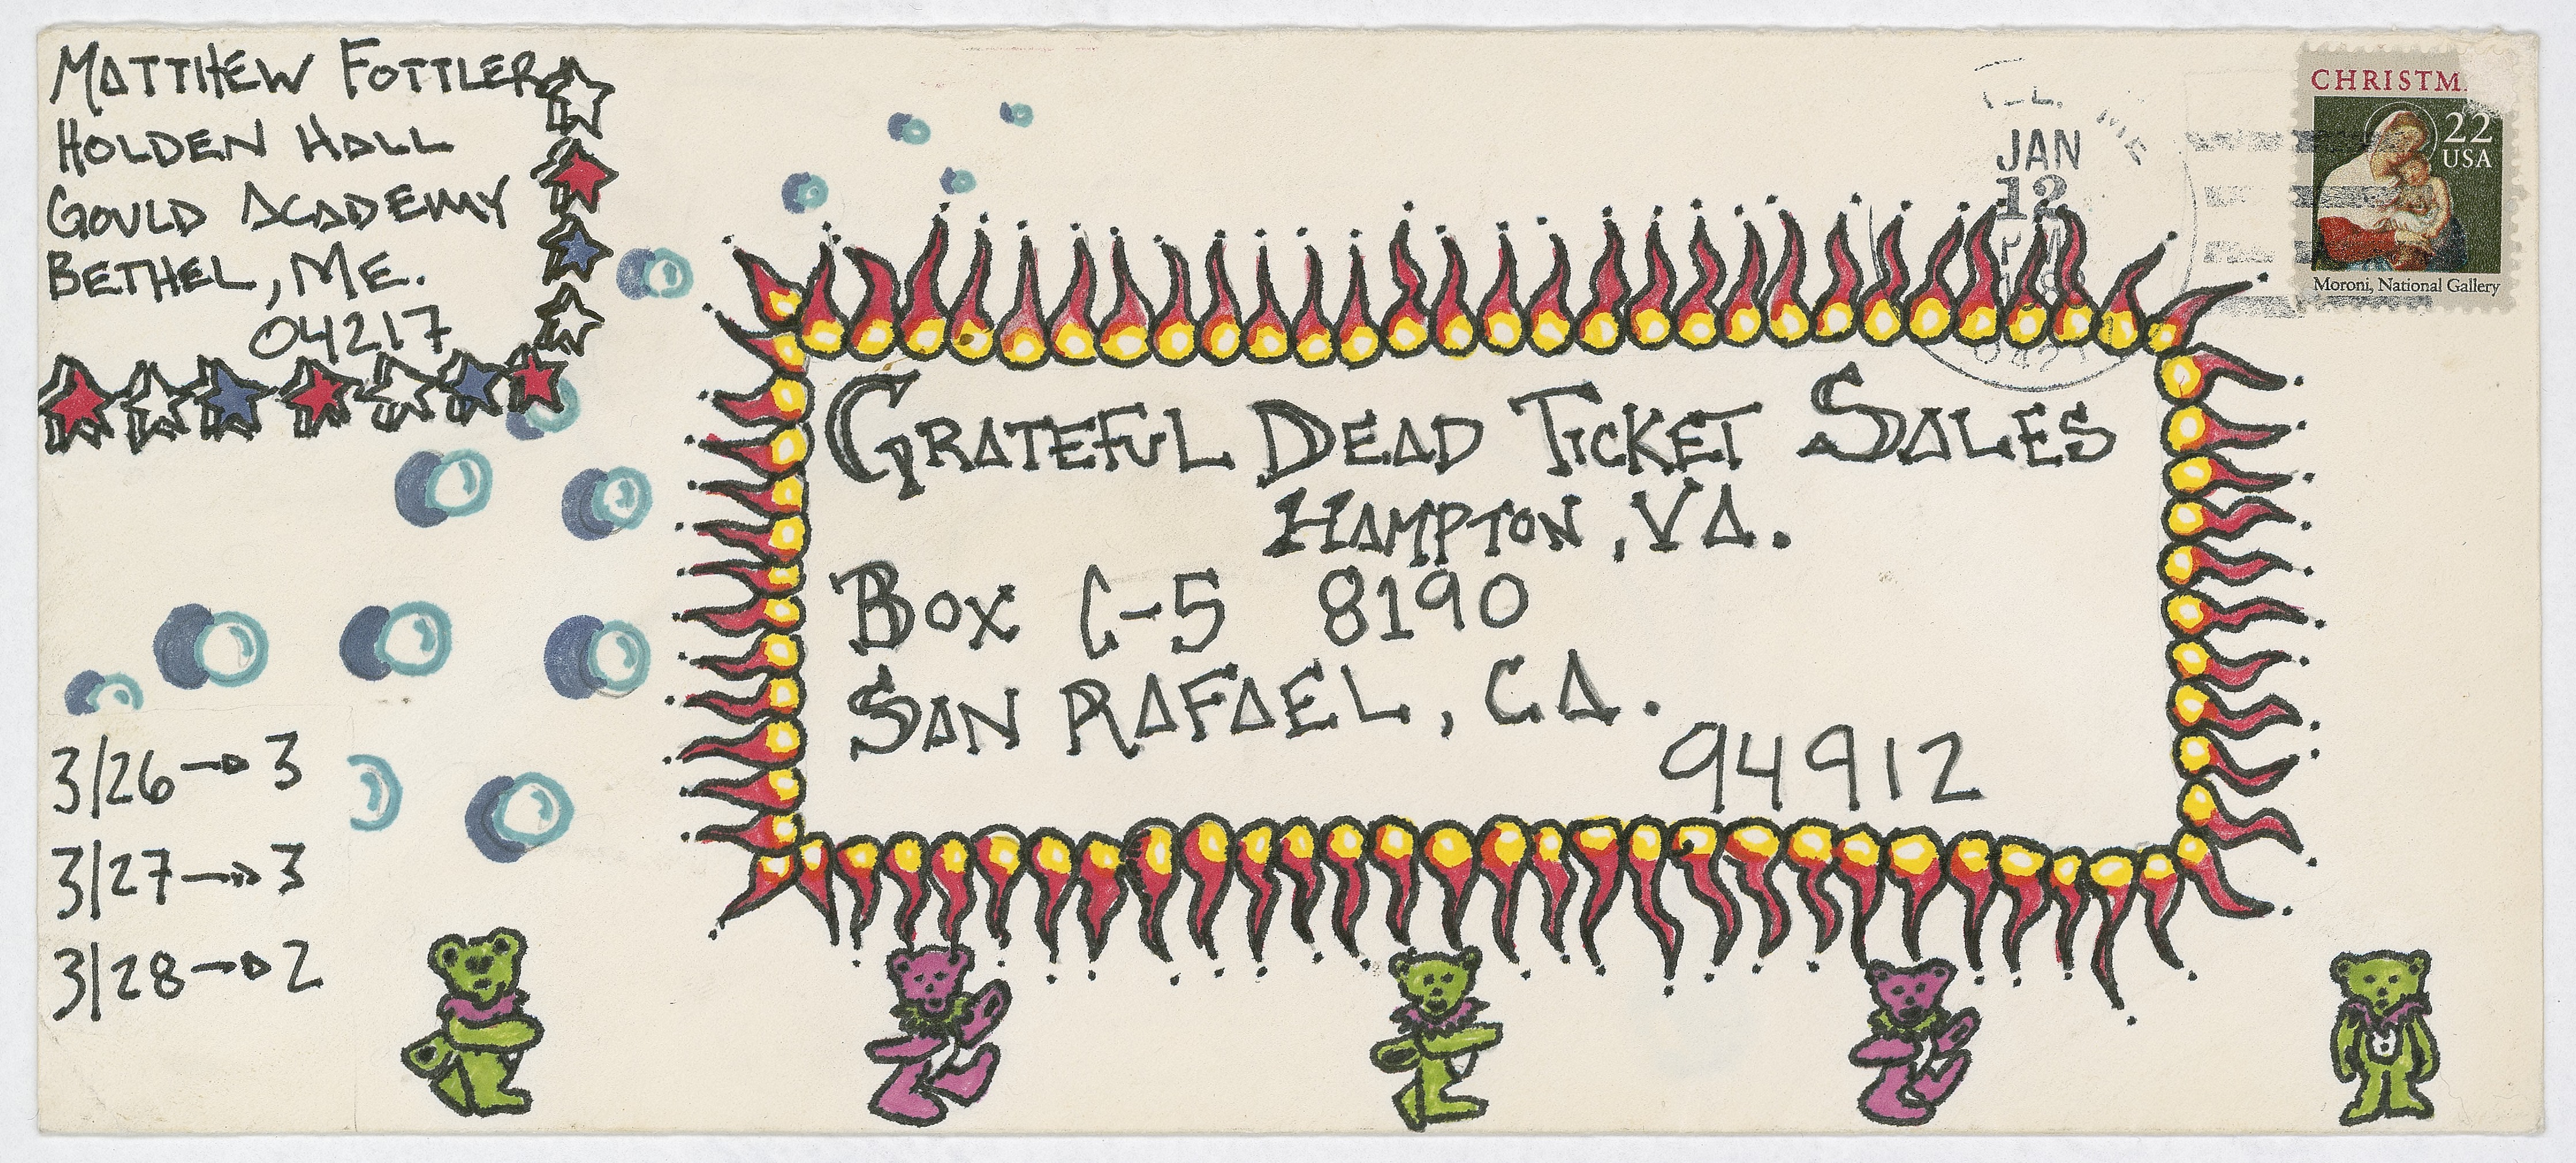 MATTHEW FOTTLER
HOLDEN HALL
GOULD ACADEMY
BETHEL, ME.
04217
JAN
12
ME
CHRISTM
22
USA
Moroni, National Gallery
GRATEFUL DEAD TICKET SALES
HAMPTON, VA.
BOX C-5 8190
SAN RAFAEL, CA.
94912
3/26→3
3/27→3
3/28→2